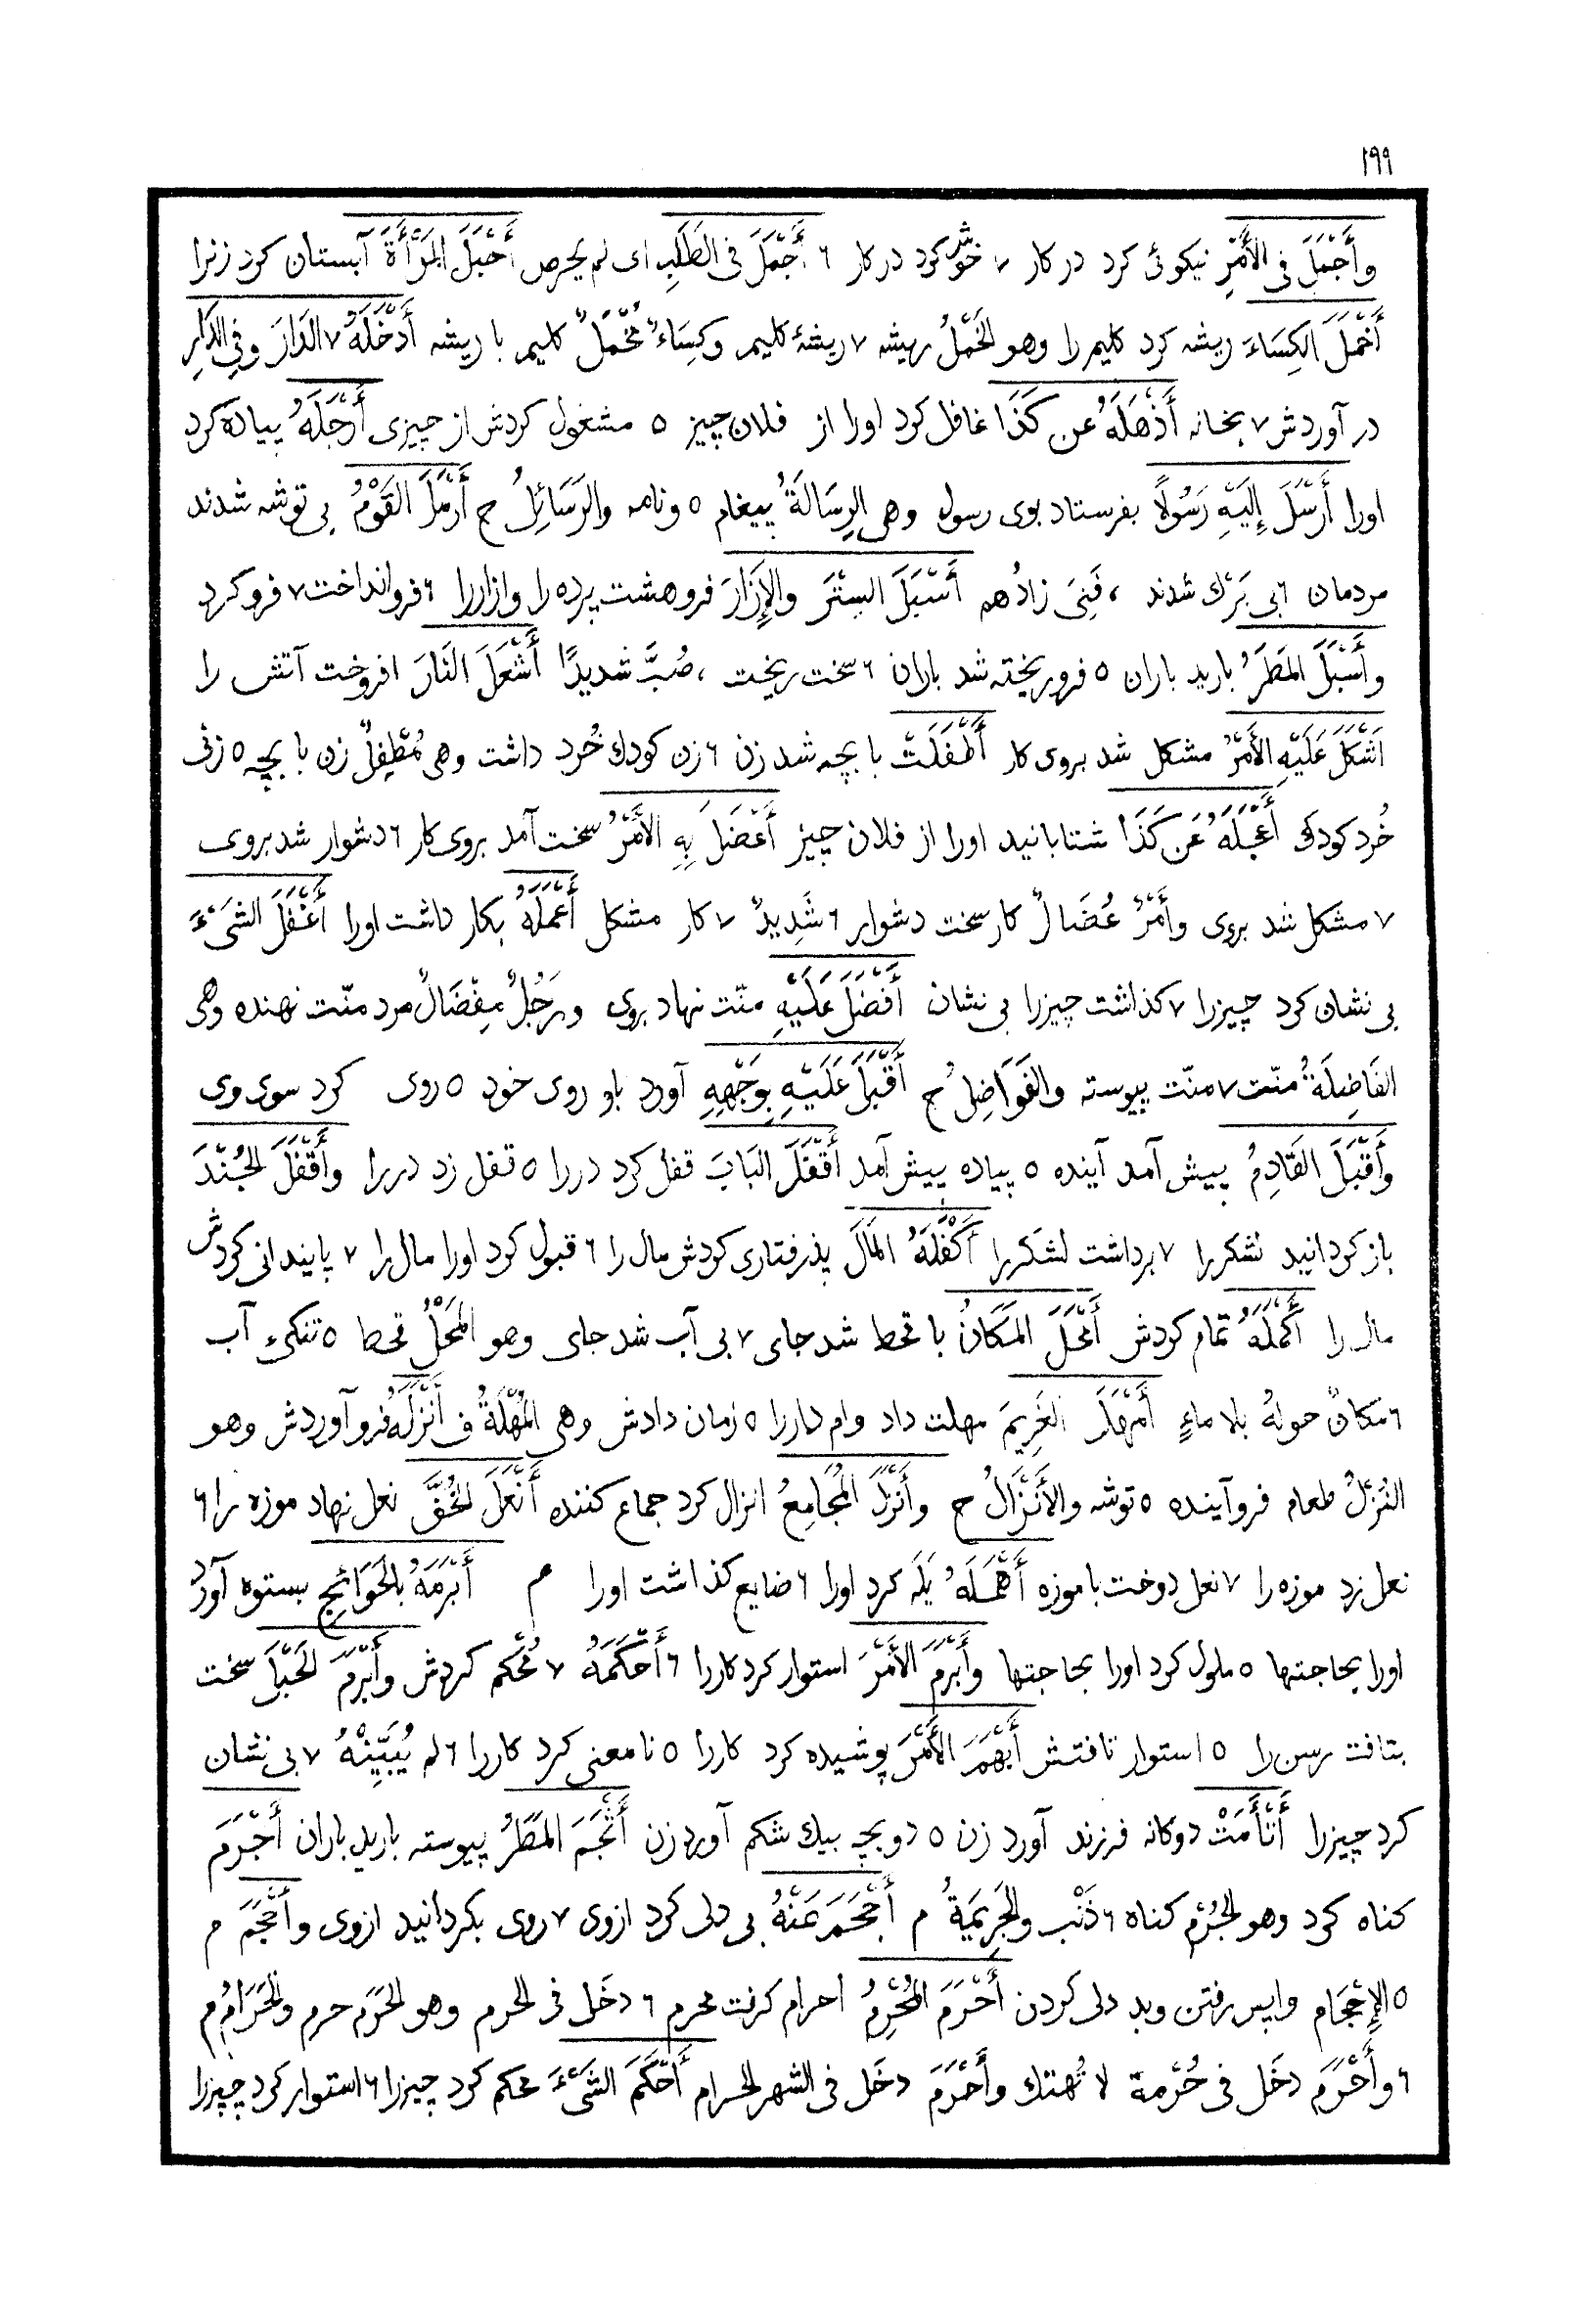 ١٩٩
وأَجْمَلَ فى الأَمْرِ نيكوئى كرد در كار ٧ خوش كرد در كار ٦ أَجْمَلَ فى الطَلَبِ اى لم يحرص أَحْبَلَ المَرْأَةَ آبستان كرد زنرا
أَخْمَلَ الكِسَاءَ ريشه كرد كليم را وهو الخَمْلُ ريشه ٧ ريشۀ كليم وكِسَاءٌ مُخْمَلٌ كليم با ريشه أَدْخَلَهُ ٧ الدَارَ وفِى الدَارِ
در آوردش ٧ بخانه أَذْهَلَهُ عن كَذَا غافل كرد اورا از فلان چيز ٥ مشغول كردش از چيزى أَرْجَلَهُ پياده كرد
اورا أَرْسَلَ إِلَيْهِ رَسُولًا بفرستاد بوى رسول وهى الرِسَالَةُ پيغام ٥ ونامه والرَسَائِلُ ج أَرْمَلَ القَوْمُ بى توشه شدند
مردمان ٦ بى بَرْك شدند ، فَنِىَ زادُهم أَسْبَلَ السِتْرَ والإِزَارَ فروهشت پرده را وازاررا ٦ فروانداخت ٧ فرو كرد
وأَسْبَلَ المَطَرُ باريد باران ٥ فرو ريخته شد باران ٦ سخت ريخت ، صُبَّ شديدًا أَشْعَلَ النَارَ افروخت آتش را
أَشْكَلَ عَلَيْهِ الأَمْرُ مشكل شد بروى كار أَطْفَلَتْ با بچه شد زن ٦ زن كودك خُرد داشت وهى مُطْفِلٌ زن با بچه ٥ زنى
خُرد كودك أَعْجَلَهُ عَن كَذَا شتابانيد اورا از فلان چيز أَعْضَلَ بِهِ الأَمْرُ سخت آمد بروى كار ٦ دشوار شد بروى
٧ مشكل شد بروى وأَمْرٌ عُضَالٌ كار سخت دشوار ٦ شَدِيدٌ ٧ كار مشكل أَعْمَلَهُ بكار داشت اورا أَغْفَلَ الشَىْءَ
بى نشان كرد چيزرا ٧ كذاشت چيزرا بى نشان أَفْضَلَ عَلَيْهِ منّت نهاد بروى ورَجُلٌ مِفْضَالٌ مرد منّت نهنده وهى
الفَاضِلَةُ منّت ٧ منّت پيوسته والفَوَاضِلُ ج أَقْبَلَ عَلَيْهِ بِوَجْهِهِ آورد باو روى خود ٥ روى كرد سوى وى
وأَقْبَلَ القَادِمُ پيش آمد آينده ٥ پياده پيش آمد أَقْفَلَ البَابَ قفل كرد دررا ٥ قفل زد دررا وأَقْفَلَ الجُنْدَ
باز كردانيد لشكررا ٧ برداشت لشكررا أَكْفَلَهُ المَالَ پذرفتارى كردش مال را ٦ قبول كرد اورا مال را ٧ پايندانى كردش
مال را أَكْمَلَهُ تمام كردش أَمْحَلَ المَكَانُ با قحط شد جاى ٧ بى آب شد جاى وهو المَحْلُ قحط ٥ تنكىء آب
٦ مَكانٌ حولهُ بلا ماءٍ أَمْهَلَ الغَرِيمَ مهلت داد وام داررا ٥ زمان دادش وهى المُهْلَةُ ف أَنْزَلَهُ فرو آوردش وهو
النُزُلُ طعام فرو آينده ٥ توشه والأَنْزَالُ ج وأَنْزَلَ المُجَامِعُ انزال كرد جماع كننده أَنْعَلَ الخُفَّ نعل نهاد موزه را ٦
نعل زد موزه را ٧ نعل دوخت با موزه أَهْمَلَهُ يَله كرد اورا ٦ ضايع كذاشت اورا م أَبْرَمَهُ بالحَوَائِجِ بستوه آورد
اورا بحاجتها ٥ ملول كرد اورا بحاجتها وأَبْرَمَ الأَمْرَ استوار كرد كاررا ٦ أَحْكَمَهُ ٧ مُحْكم كردش وأَبْرَمَ الحَبْلَ سخت
بتافت رسن را ٥ استوار تافتش أَبْهَمَ الأَمْرَ پوشيده كرد كاررا ٥ نامعنى كرد كاررا ٦ لم يُبَيِّنْهُ ٧ بى نشان
كرد چيزرا أَتْأَمَتْ دوكانه فرزند آورد زن ٥ دو بچه بيك شكم آورد زن أَثْجَمَ المَطَرُ پيوسته باريد باران أَجْرَمَ
كناه كرد وهو الجُرْم كناه ٦ ذَنْب والجَرِيمَةُ م أَحْجَمَ عَنْهُ بى دلى كرد ازوى ٧ روى بكردانيد ازوى وأَجْحَمَ م
٥ الإِحْجَام واپس رفتن وبد دلى كردن أَحْرَمَ المُحْرِمُ احرام كرفت محرم ٦ دخَل فى الحرم وهو الحَرَم حرم والحَرَامُ م
٦ وأَحْرَمَ دخَل فى حُرْمة لا تُهتك وأَحْرَمَ دخَل فى الشهر الحرام أَحْكَمَ الشَىْءَ محكم كرد چيزرا ٦ استوار كرد چيزرا